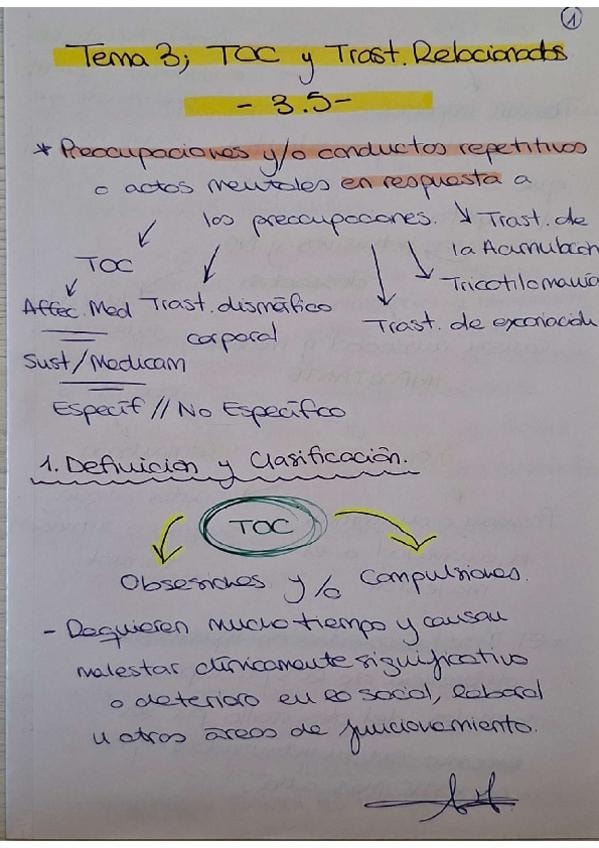 1
Tema 3; TOC y Trast. Relacionados
- 3.5 -
* Preocupaciones y/o conductas repetitivas
o actos mentales en respuesta a
las preocupaciones.
Trast. de
la Acumulación
TOC
Tricotilomanía
Affec. Med
Trast. dismófico
corporal
Trast. de excoriación
Sust/Medicam
Específ // No Específico
1. Definición y Clasificación.
TOC
Obsesiones y/o Compulsiones.
- Requieren mucho tiempo y causan
malestar clínicamente significativo
o deterioro en lo social, laboral
u otros áreas de funcionamiento.